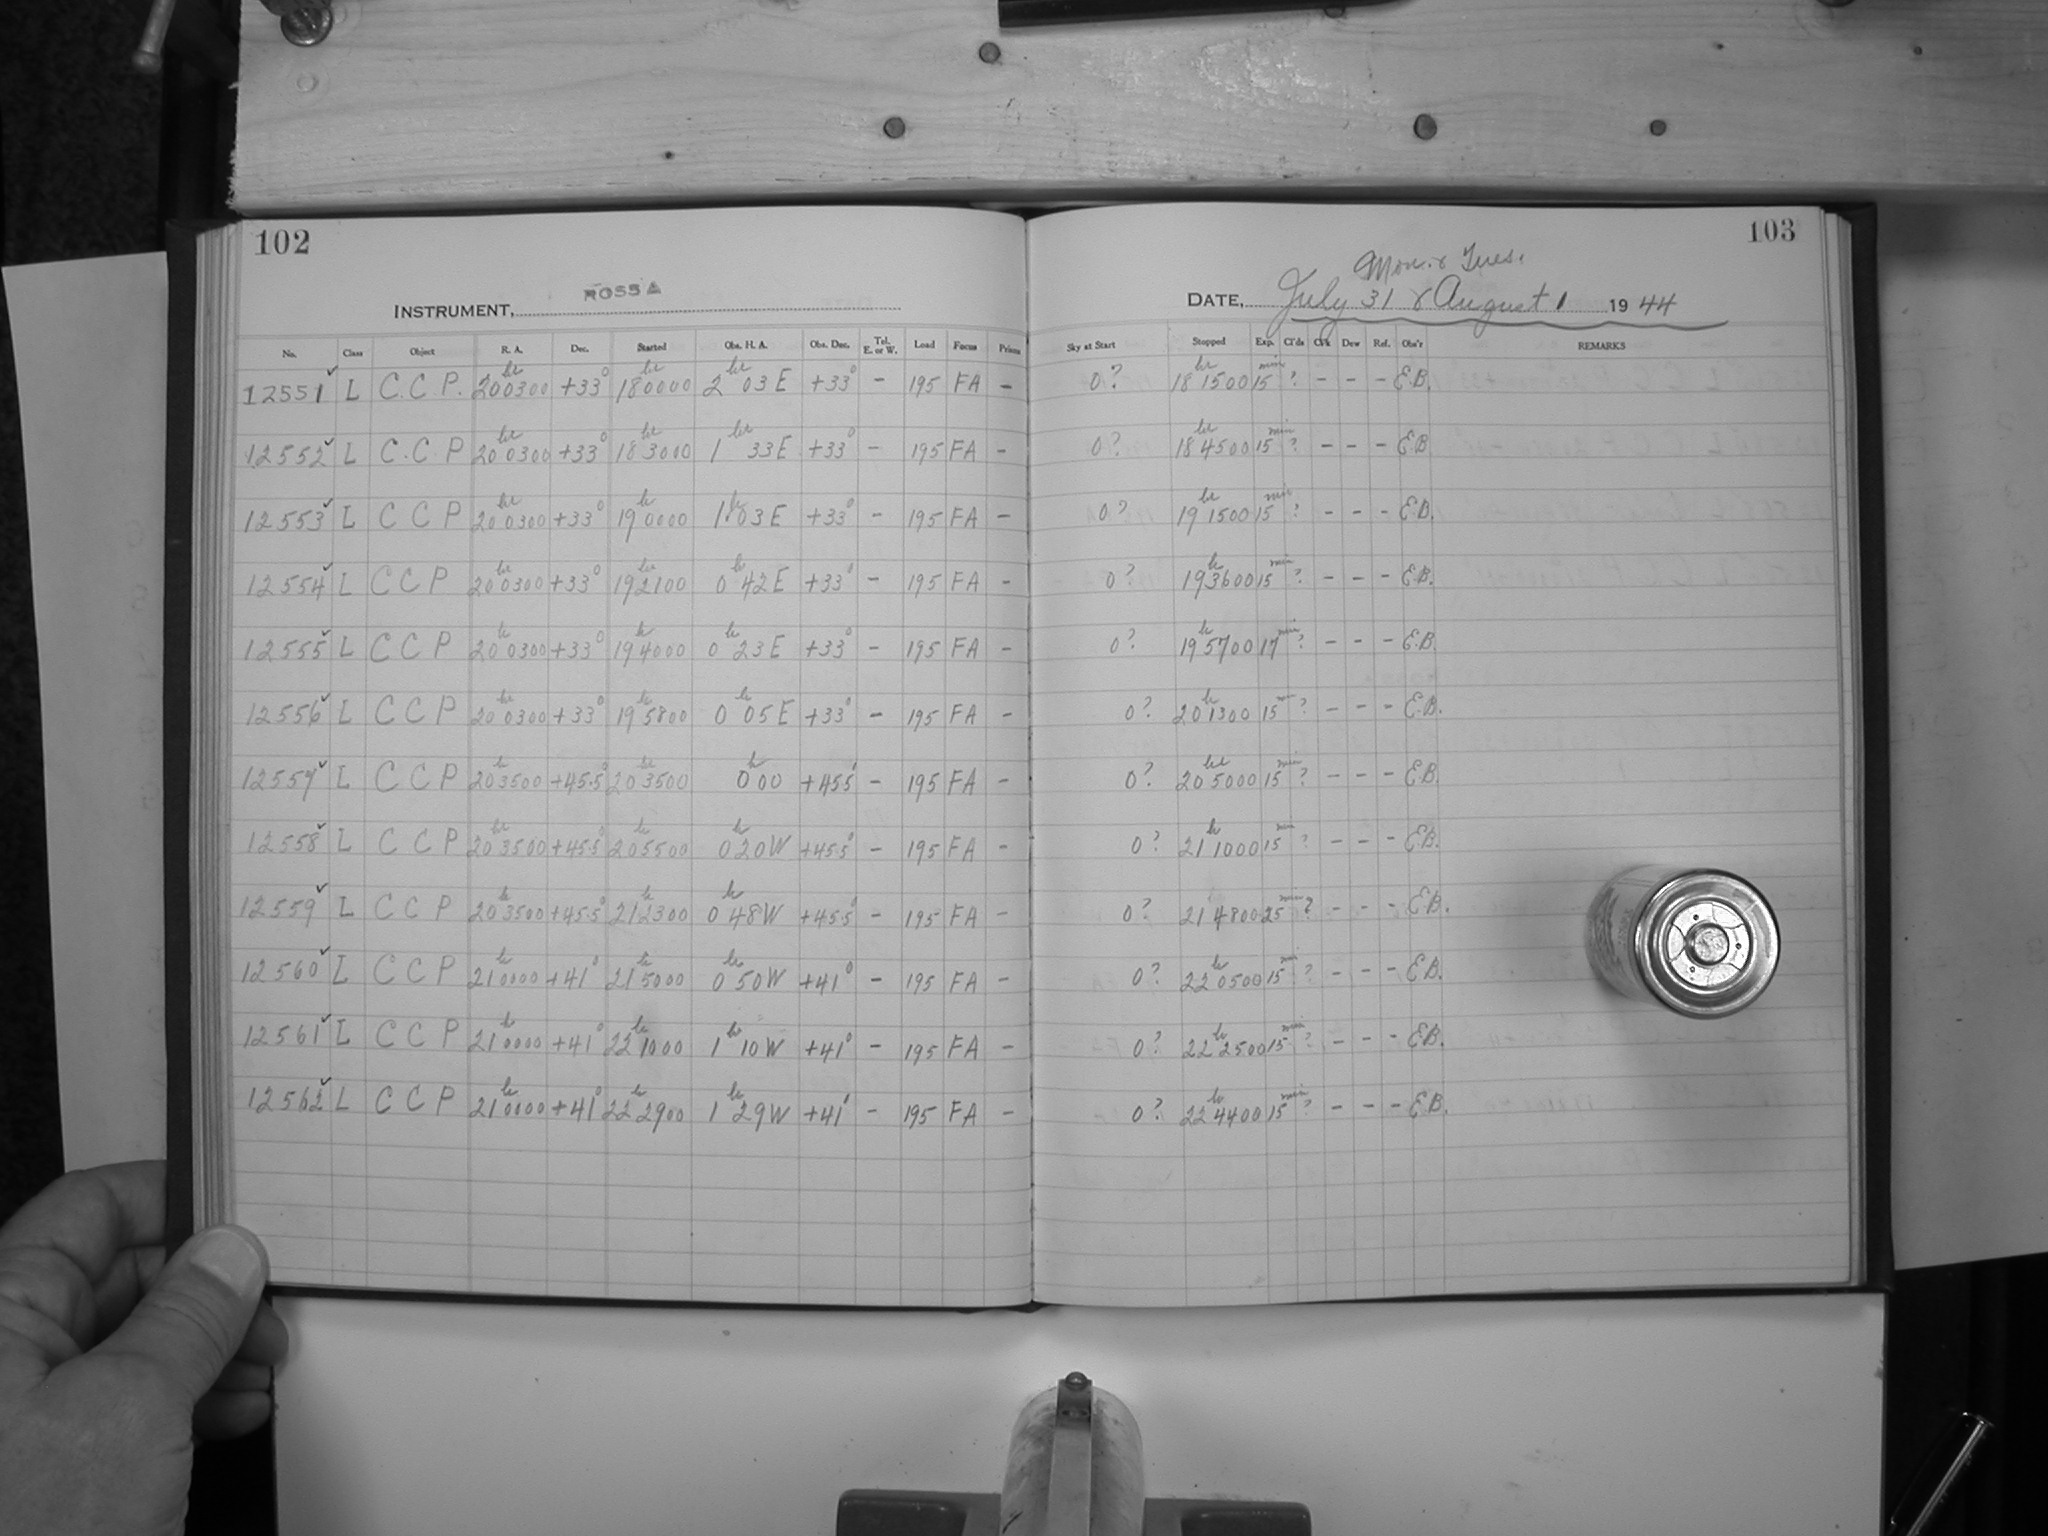 102
INSTRUMENT, ROSS A
No. Class Object R. A. Dec. Started Obs. H. A. Obs. Dec. Tel. E. or W. Load Focus Prisms
12551 L C.C.P. 20 hr 0300 +33° 18 hr 0000 2 hr 03 E +33° - 195 FA -
12552 L C.C.P 20 hr 0300 +33° 18 hr 3000 1 hr 33E +33° - 195 FA -
12553 L C C P 20 hr 0300 +33° 19 h 0000 1 h 03E +33° - 195 FA -
12554 L C C P 20 hr 0300 +33° 19 hr 2100 0 h 42E +33° - 195 FA -
12555 L C C P 20 h 0300 +33° 19 h 4000 0 h 23E +33° - 195 FA -
12556 L C C P 20 hr 0300 +33° 19 h 5800 0 h 05E +33° - 195 FA -
12557 L C C P 20 h 3500 +45.5° 20 hr 3500 0 h 00 +45.5° - 195 FA -
12558 L C C P 20 hr 3500 +45.5° 20 h 5500 0 h 20W +45.5° - 195 FA -
12559 L C C P 20 h 3500 +45.5° 21 h 2300 0 h 48W +45.5° - 195 FA -
12560 L C C P 21 h 0000 +41° 21 h 5000 0 h 50W +41° - 195 FA -
12561 L C C P 21 h 0000 +41° 22 h 1000 1 h 10W +41° - 195 FA -
12562 L C C P 21 h 0000 +41° 22 h 2900 1 h 29W +41° - 195 FA -
103
Mon. & Tues.
DATE, July 31 & August 1 1944
Sky at Start Stopped Exp. Cl'ds Dew Ref. Obs'r REMARKS
0? 18 hr 1500 15 min ? - - - E.B.
0? 18 hr 4500 15 min ? - - - E.B
0? 19 hr 1500 15 min ? - - - E.B.
0? 19 h 3600 15 min ? - - - E.B.
0? 19 h 5700 17 min ? - - - E.B.
0? 20 h 1300 15 min ? - - - E.B.
0? 20 hr 5000 15 min ? - - - E.B.
0? 21 h 1000 15 min ? - - - E.B.
0? 21 4800 25 min ? - - - E.B.
0? 22 h 0500 15 min ? - - - E.B.
0? 22 h 2500 15 min ? - - - E.B.
0? 22 h 4400 15 min ? - - - E.B.